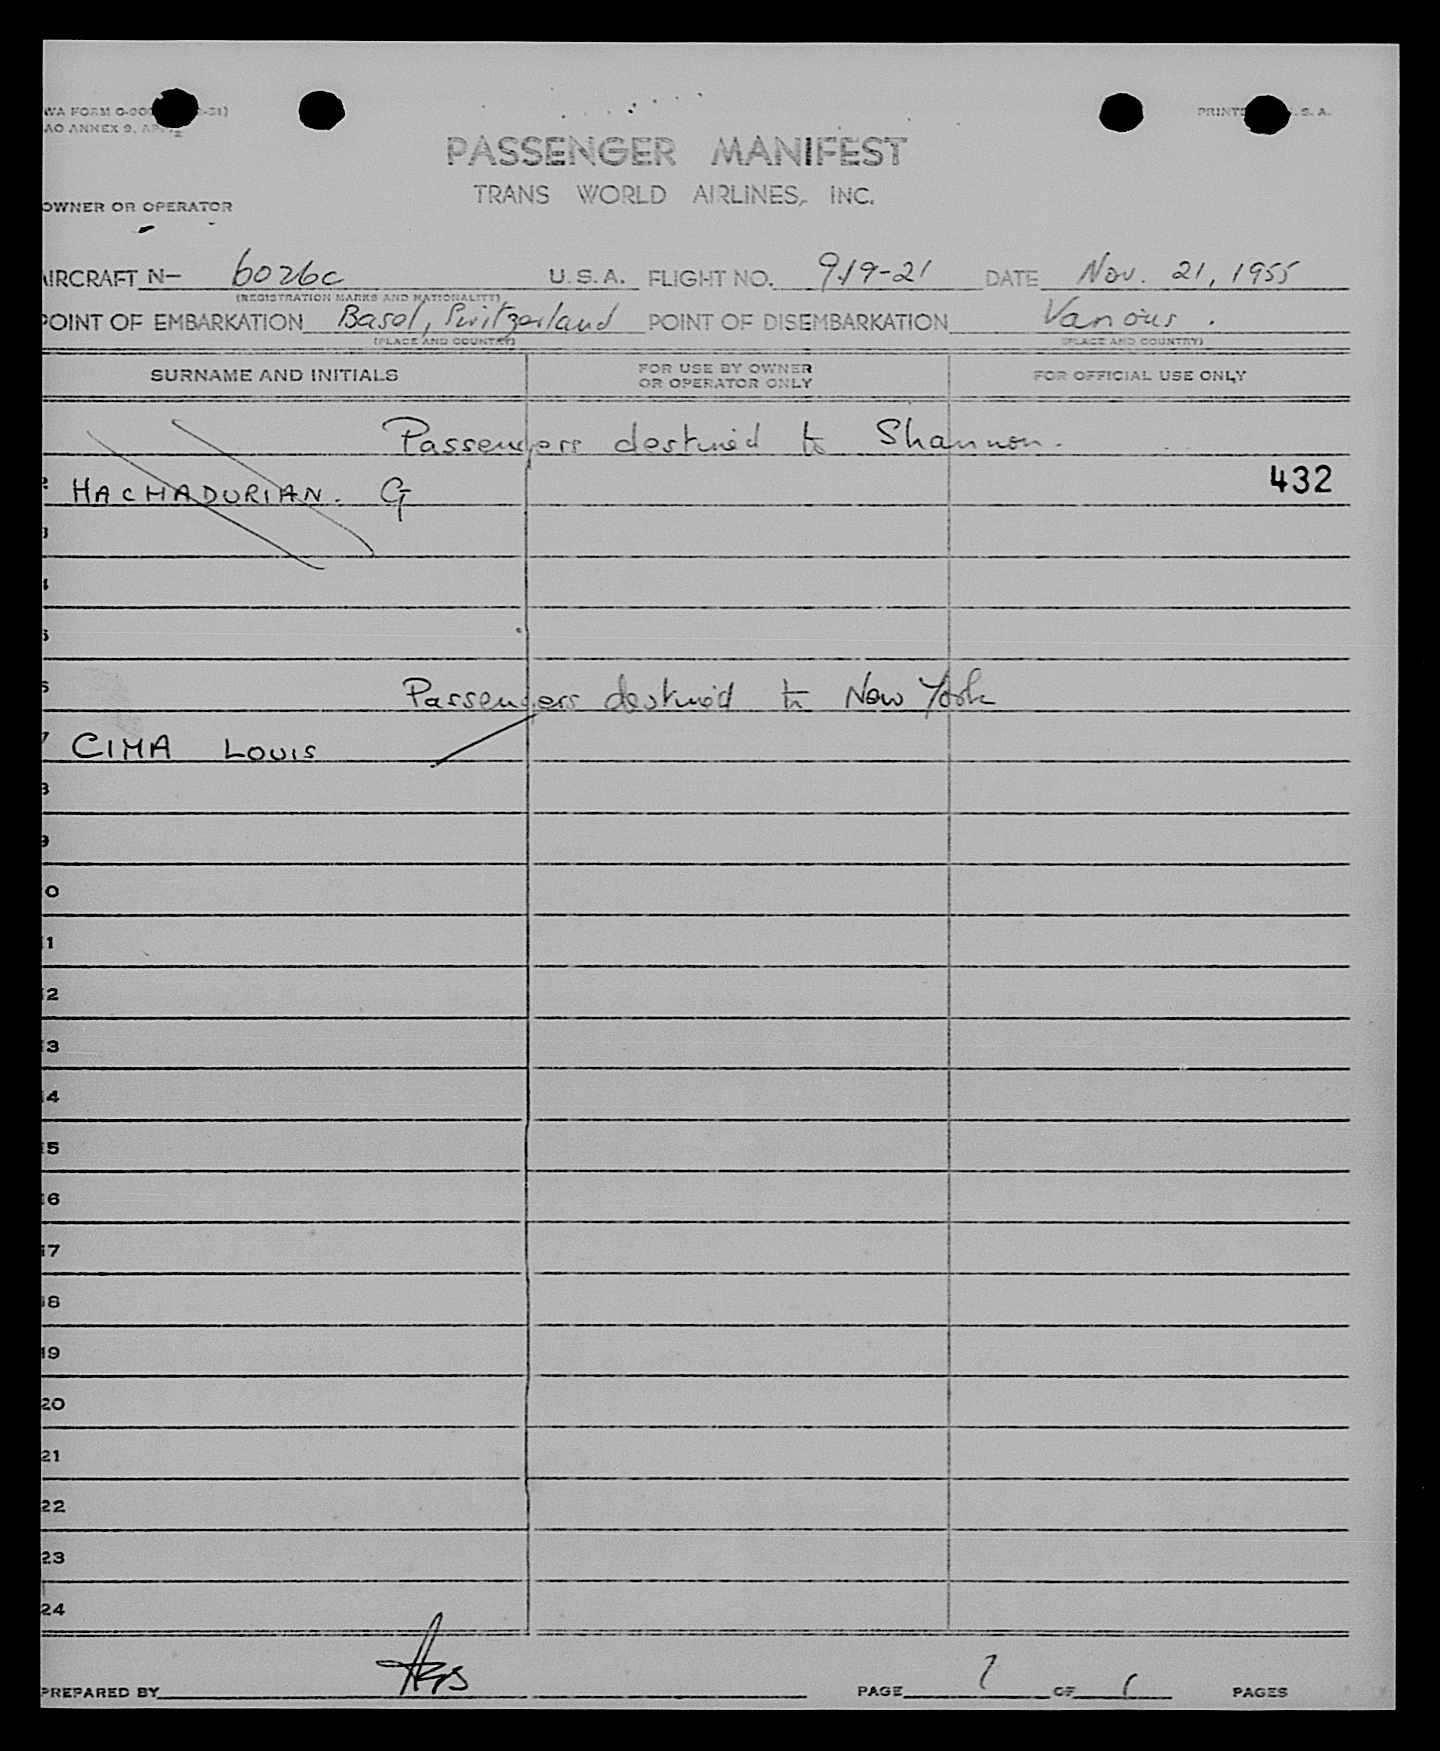 WA FORM O-
PRINT S. A.
AO ANNEX 9, AP
PASSENGER MANIFEST
TRANS WORLD AIRLINES, INC.
OWNER OR OPERATOR
AIRCRAFT N— 6026C U.S.A. FLIGHT NO. 919-21 DATE Nov. 21, 1955
(REGISTRATION MARKS AND NATIONALITY)
POINT OF EMBARKATION Basel, Switzerland POINT OF DISEMBARKATION Various.
(PLACE AND COUNTRY) (PLACE AND COUNTRY)
SURNAME AND INITIALS FOR USE BY OWNER OR OPERATOR ONLY FOR OFFICIAL USE ONLY
Passengers destined to Shannon.
2 HACHADURIAN. G 432
3
4
5
6 Passengers destined to New York
7 CIMA LOUIS
8
9
10
11
12
13
14
15
16
17
18
19
20
21
22
23
24
PREPARED BY PAGE 1 OF 1 PAGES